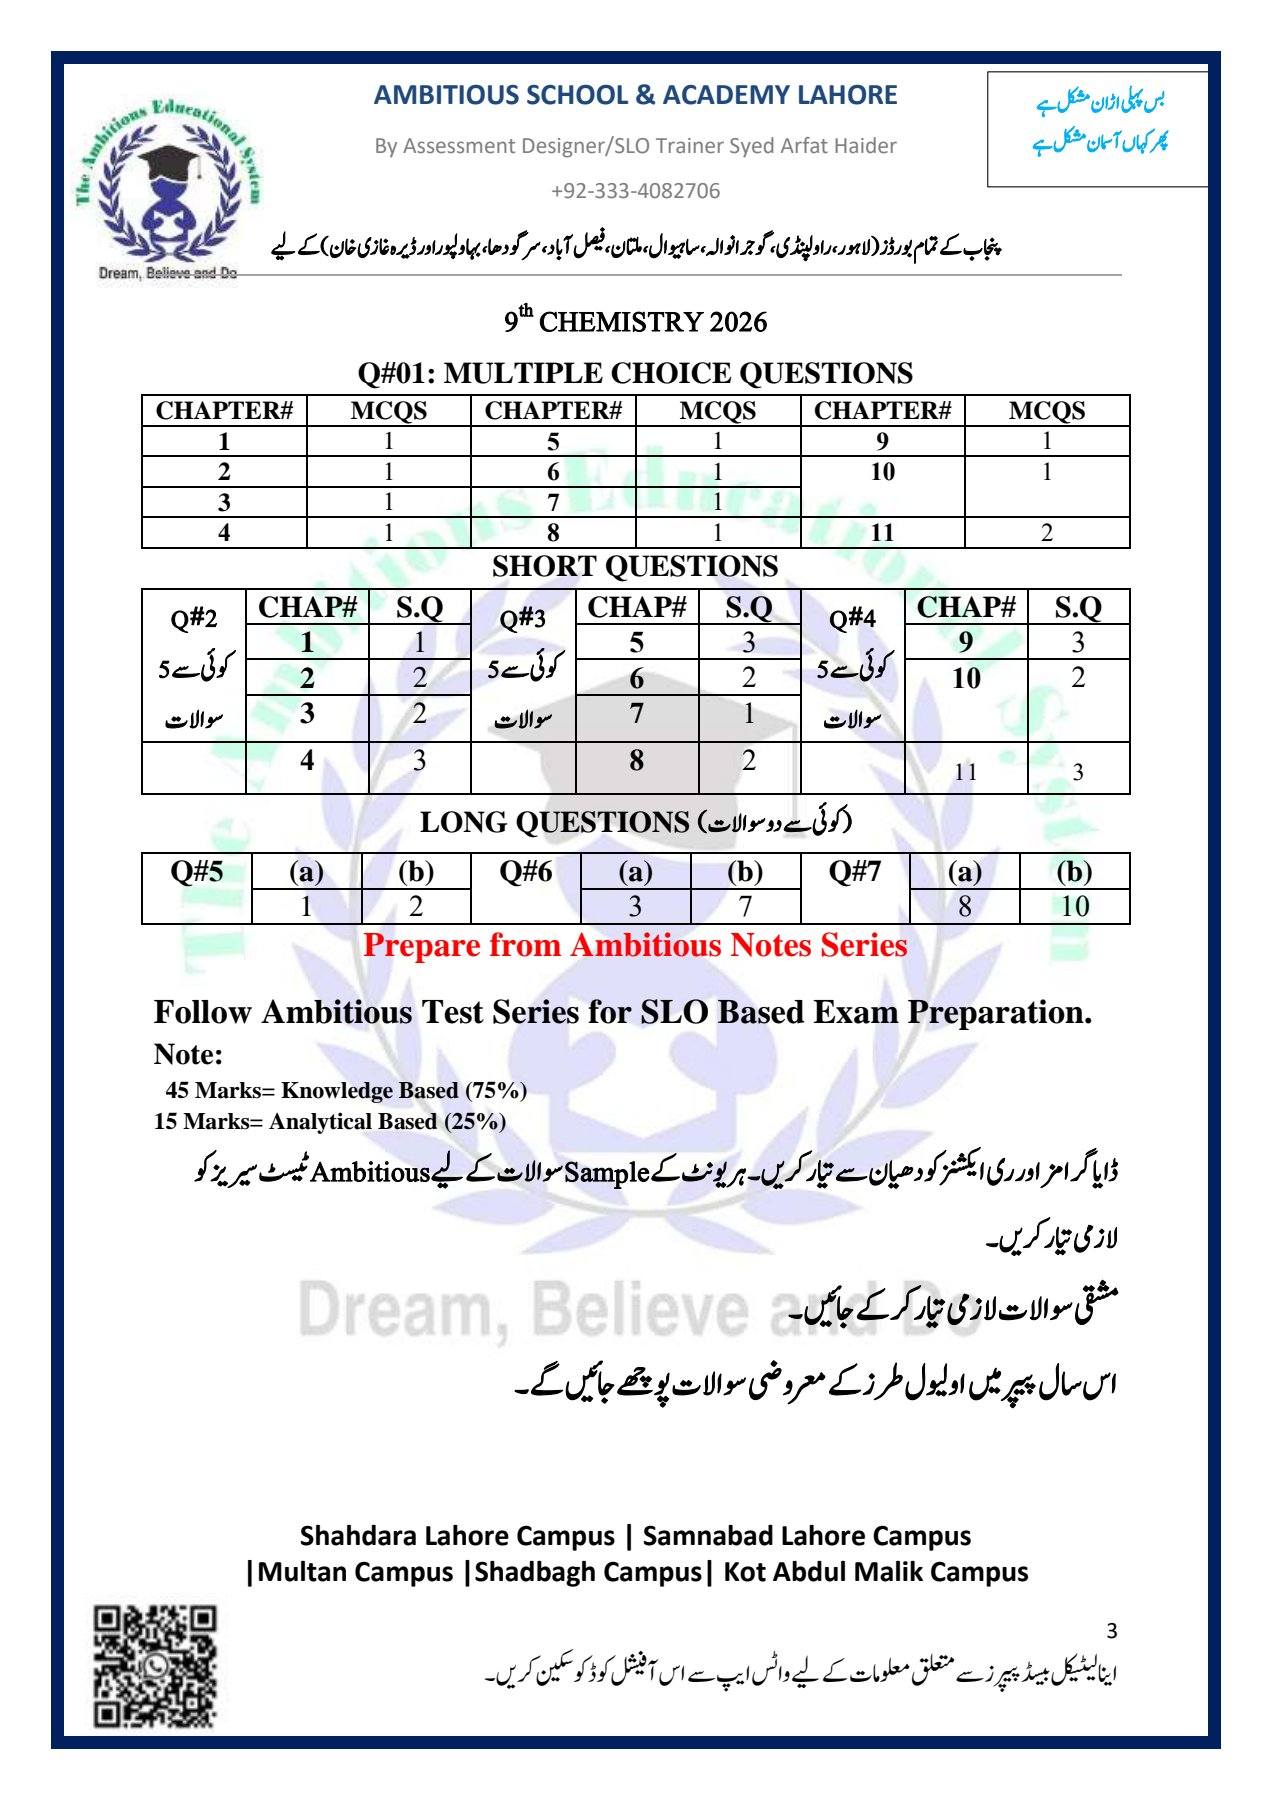 The Ambitious Educational System
Dream, Believe and Do
AMBITIOUS SCHOOL & ACADEMY LAHORE
By Assessment Designer/SLO Trainer Syed Arfat Haider
+92-333-4082706
بس پہلی اڑان مشکل ہے
پھر کہاں آسمان مشکل ہے
پنجاب کے تمام بورڈز (لاہور، راولپنڈی، گوجرانوالہ، ساہیوال، ملتان، فیصل آباد، سرگودھا، بہاولپور اور ڈیرہ غازی خان) کے لیے
9th CHEMISTRY 2026
Q#01: MULTIPLE CHOICE QUESTIONS
CHAPTER# MCQS CHAPTER# MCQS CHAPTER# MCQS
1 1 5 1 9 1
2 1 6 1 10 1
3 1 7 1
4 1 8 1 11 2
SHORT QUESTIONS
Q#2 CHAP# S.Q Q#3 CHAP# S.Q Q#4 CHAP# S.Q
1 1 5 3 9 3
کوئی سے 5 2 2 کوئی سے 5 6 2 کوئی سے 5 10 2
سوالات 3 2 سوالات 7 1 سوالات
4 3 8 2 11 3
LONG QUESTIONS (کوئی سے دو سوالات)
Q#5 (a) (b) Q#6 (a) (b) Q#7 (a) (b)
1 2 3 7 8 10
Prepare from Ambitious Notes Series
Follow Ambitious Test Series for SLO Based Exam Preparation.
Note:
45 Marks= Knowledge Based (75%)
15 Marks= Analytical Based (25%)
ڈایاگرامز اور ری ایکشنز کو دھیان سے تیار کریں۔ ہر یونٹ کے Sample سوالات کے لیے Ambitious ٹیسٹ سیریز کو
لازمی تیار کریں۔
مشقی سوالات لازمی تیار کر کے جائیں۔
اس سال پیپر میں اولیول طرز کے معروضی سوالات پوچھے جائیں گے۔
The Ambitious Educational System
Dream, Believe and Do
Shahdara Lahore Campus | Samnabad Lahore Campus
|Multan Campus |Shadbagh Campus| Kot Abdul Malik Campus
3
اینالیٹیکل بیسڈ پیپرز سے متعلق معلومات کے لیے واٹس ایپ سے اس آفیشل کوڈ کو سکین کریں۔